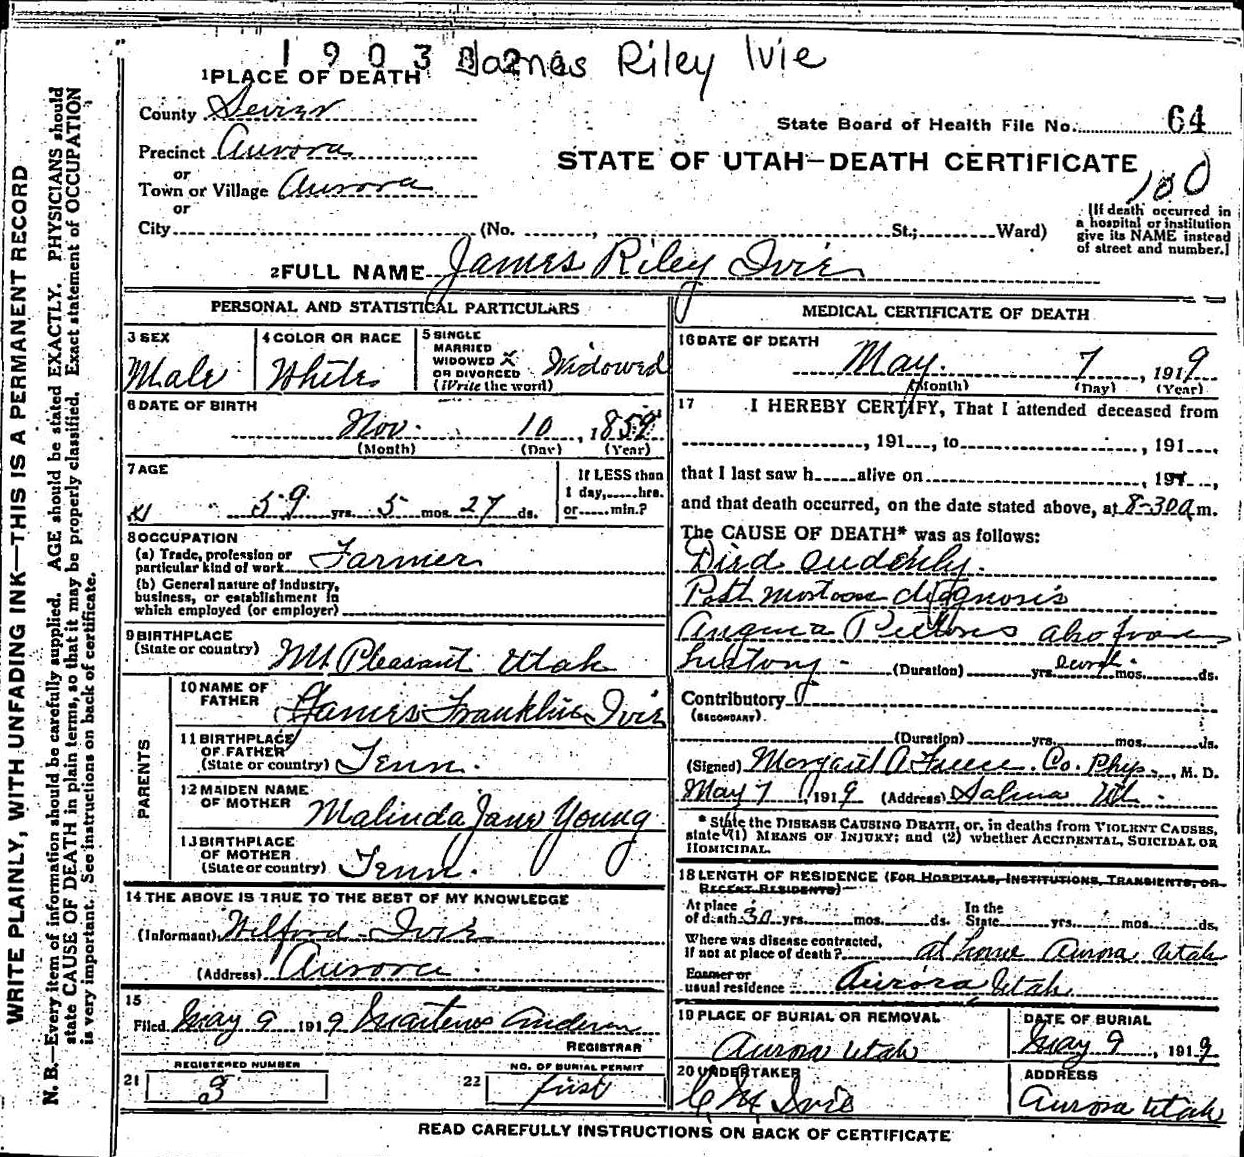 1903 James Riley Ivie
1 PLACE OF DEATH
County Sevier
State Board of Health File No. 64
Precinct Aurora
STATE OF UTAH—DEATH CERTIFICATE
100
or
Town or Village Aurora
or
City (No. , St.; Ward)
[If death occurred in
a hospital or institution
give its NAME instead
of street and number.]
2 FULL NAME James Riley Ivie
PERSONAL AND STATISTICAL PARTICULARS
3 SEX
Male
4 COLOR OR RACE
White
5 SINGLE
MARRIED
WIDOWED X
OR DIVORCED
(Write the word)
Widowed
6 DATE OF BIRTH
Nov. 10, 1859
(Month) (Day) (Year)
7 AGE
59 yrs. 5 mos. 27 ds.
If LESS than
1 day, hrs.
or min.?
8 OCCUPATION
(a) Trade, profession or
particular kind of work Farmer
(b) General nature of industry,
business, or establishment in
which employed (or employer)
9 BIRTHPLACE
(State or country) Mt Pleasant Utah
PARENTS
10 NAME OF
FATHER James Franklin Ivie
11 BIRTHPLACE
OF FATHER
(State or country) Tenn.
12 MAIDEN NAME
OF MOTHER Malinda Jane Young
13 BIRTHPLACE
OF MOTHER
(State or country) Tenn.
14 THE ABOVE IS TRUE TO THE BEST OF MY KNOWLEDGE
(Informant) Wilford Ivie
(Address) Aurora.
15
Filed May 9 1919
REGISTRAR
REGISTERED NUMBER
21 3
NO. OF BURIAL PERMIT
22 first
MEDICAL CERTIFICATE OF DEATH
16 DATE OF DEATH
May. 7, 1919
(Month) (Day) (Year)
17 I HEREBY CERTIFY, That I attended deceased from
, 191 , to , 191 ,
that I last saw h alive on , 191 ,
and that death occurred, on the date stated above, at 8-30 a m.
The CAUSE OF DEATH* was as follows:
Died sudenly.
Post mortose diagnosis
Angina Pectoris also from
history - (Duration) yrs. mos. ds.
Contributory
(SECONDARY)
(Duration) yrs. mos. ds.
(Signed) Margaret A. Co. Phys., M. D.
May 7, 1919 (Address) Salina Ut.
* State the DISEASE CAUSING DEATH, or, in deaths from VIOLENT CAUSES,
state (1) MEANS OF INJURY; and (2) whether ACCIDENTAL, SUICIDAL OR
HOMICIDAL.
18 LENGTH OF RESIDENCE (FOR HOSPITALS, INSTITUTIONS, TRANSIENTS, OR
RECENT RESIDENTS)
At place
of death 30 yrs. mos. ds.
In the
State yrs. mos. ds.
Where was disease contracted,
if not at place of death? at home Aurora Utah
Former or
usual residence Aurora Utah
19 PLACE OF BURIAL OR REMOVAL
Aurora Utah
DATE OF BURIAL
May 9, 1919
20 UNDERTAKER
Ivie
ADDRESS
Aurora Utah
READ CAREFULLY INSTRUCTIONS ON BACK OF CERTIFICATE
WRITE PLAINLY, WITH UNFADING INK—THIS IS A PERMANENT RECORD
N. B.—Every item of information should be carefully supplied. AGE should be stated EXACTLY. PHYSICIANS should
state CAUSE OF DEATH in plain terms, so that it may be properly classified. Exact statement of OCCUPATION
is very important. See instructions on back of certificate.